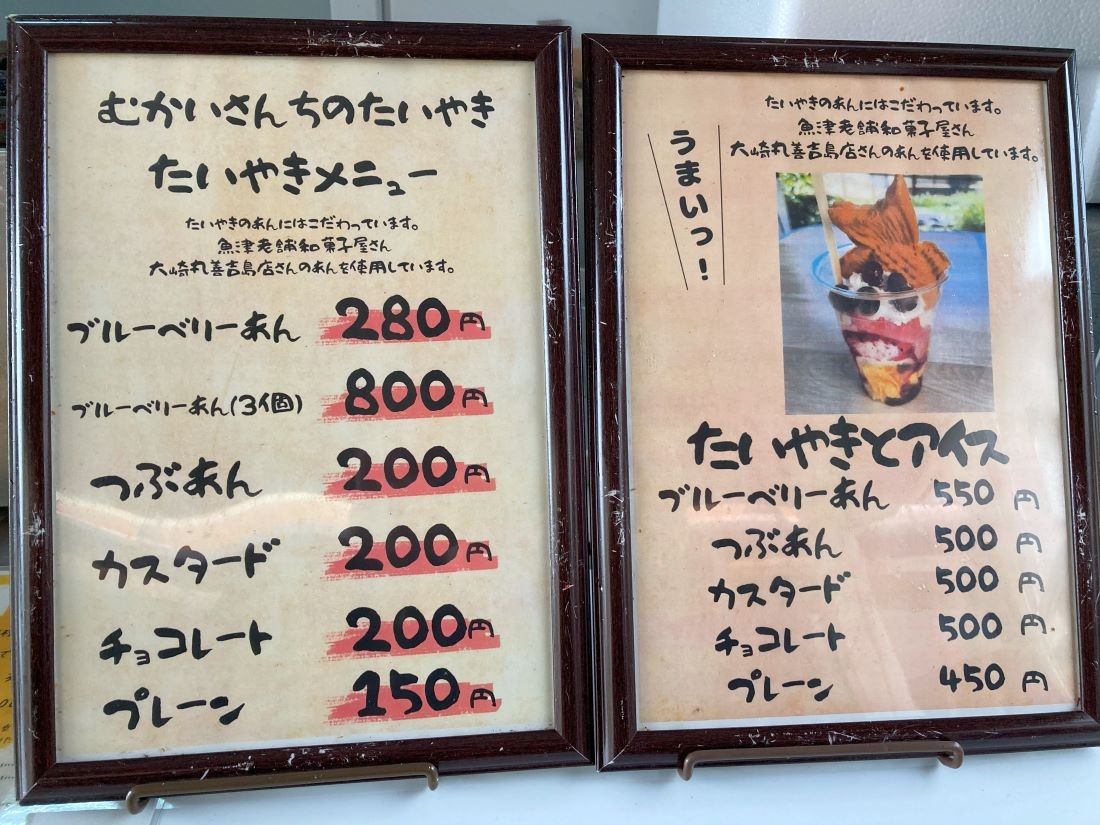 むかいさんちのたいやき
たいやきメニュー
たいやきのあんにはこだわっています。
魚津老舗和菓子屋さん
大崎丸善吉島店さんのあんを使用しています。
ブルーベリーあん 280円
ブルーベリーあん(3個) 800円
つぶあん 200円
カスタード 200円
チョコレート 200円
プレーン 150円
たいやきのあんにはこだわっています。
魚津老舗和菓子屋さん
大崎丸善吉島店さんのあんを使用しています。
うまいっ!
たいやきとアイス
ブルーベリーあん 550円
つぶあん 500円
カスタード 500円
チョコレート 500円
プレーン 450円